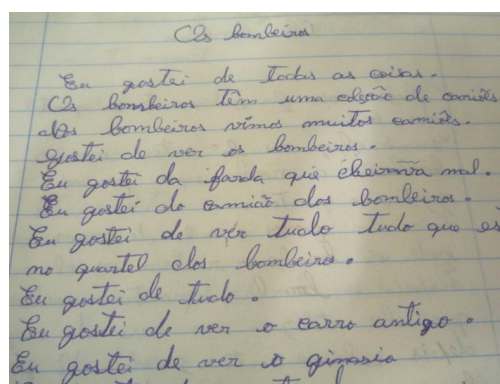 Os bombeiros
Eu gostei de todas as coisas.
Os bombeiros têm uma coleção de camiões
dos bombeiros vimos muitos camiões.
gostei de ver os bombeiros.
Eu gostei da farda que cheirava mal.
Eu gostei do camião dos bombeiros.
Eu gostei de ver tudo tudo que es
no quartel dos bombeiros.
Eu gostei de tudo.
Eu gostei de ver o carro antigo.
Eu gostei de ver o ginasio